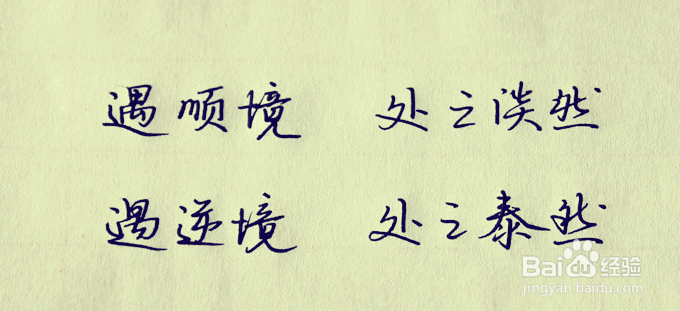 遇顺境 处之淡然
遇逆境 处之泰然
Baidu经验
jingyan.baidu.com